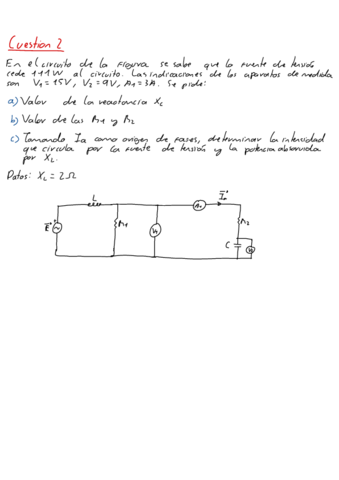 Cuestion 2
En el circuito de la figura se sabe que la fuente de tensión
cede 111W al circuito. Las indicaciones de los aparatos de medida
son V1 = 15V, V2 = 9V, A1 = 3A. Se pide:
a) Valor de la reactancia Xc
b) Valor de las R1 y R2
c) Tomando Ia como origen de fases, determinar la intensidad
que circula por la fuente de tensión y la potencia absorbida
por XL.
Datos: XL = 2Ω
L
E
R1
V1
A1
R2
C